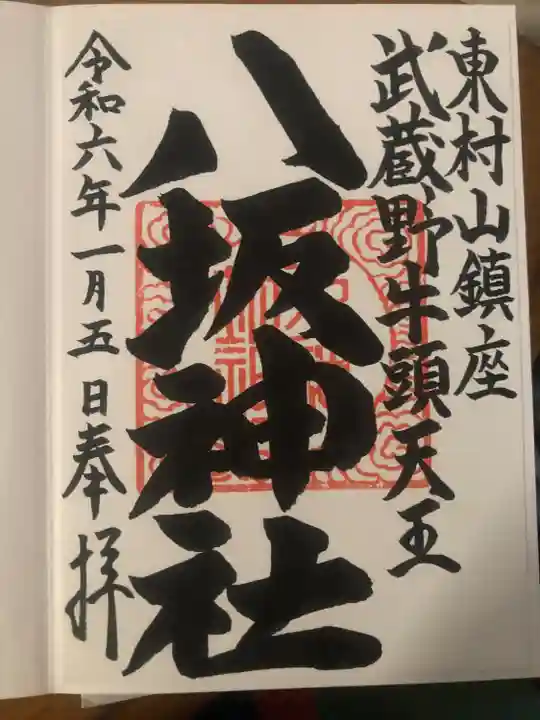 東村山鎮座
武蔵野牛頭天王
八坂神社
令和六年一月五日奉拝